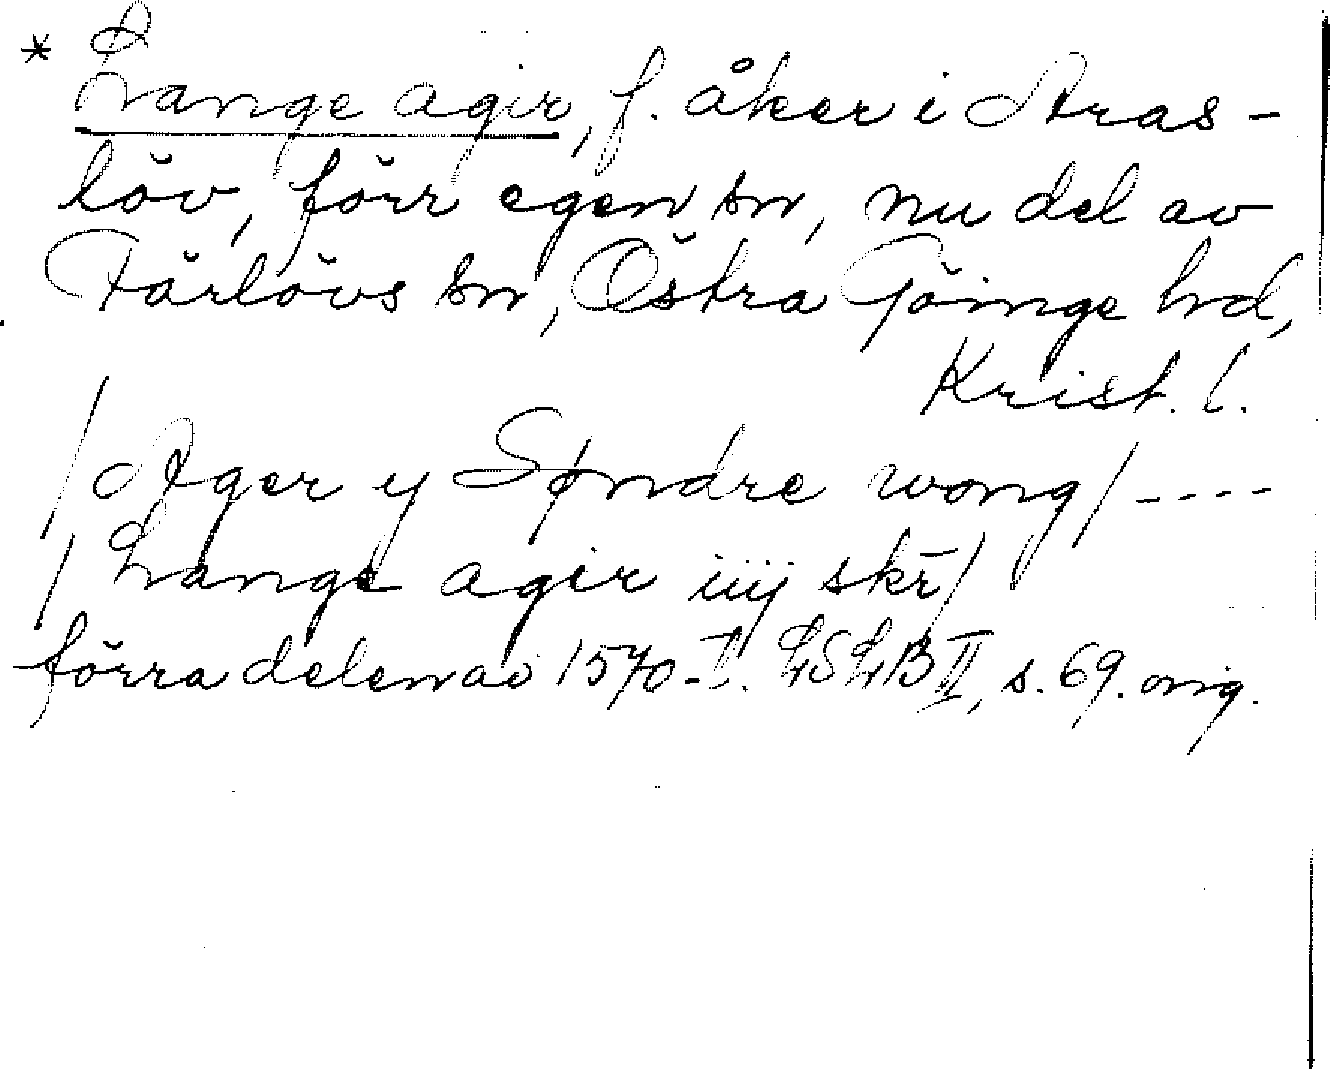 * Lange agir, f. åker i Aras-
löv, förr egen sn, nu del av
Färlövs sn, Östra Göinge hd,
Krist. l.
/Ager y Søndre wong/ ----
/Lange agir iiij skr̄/
förra delen av 1570-t. LSLB II, s. 69. orig.